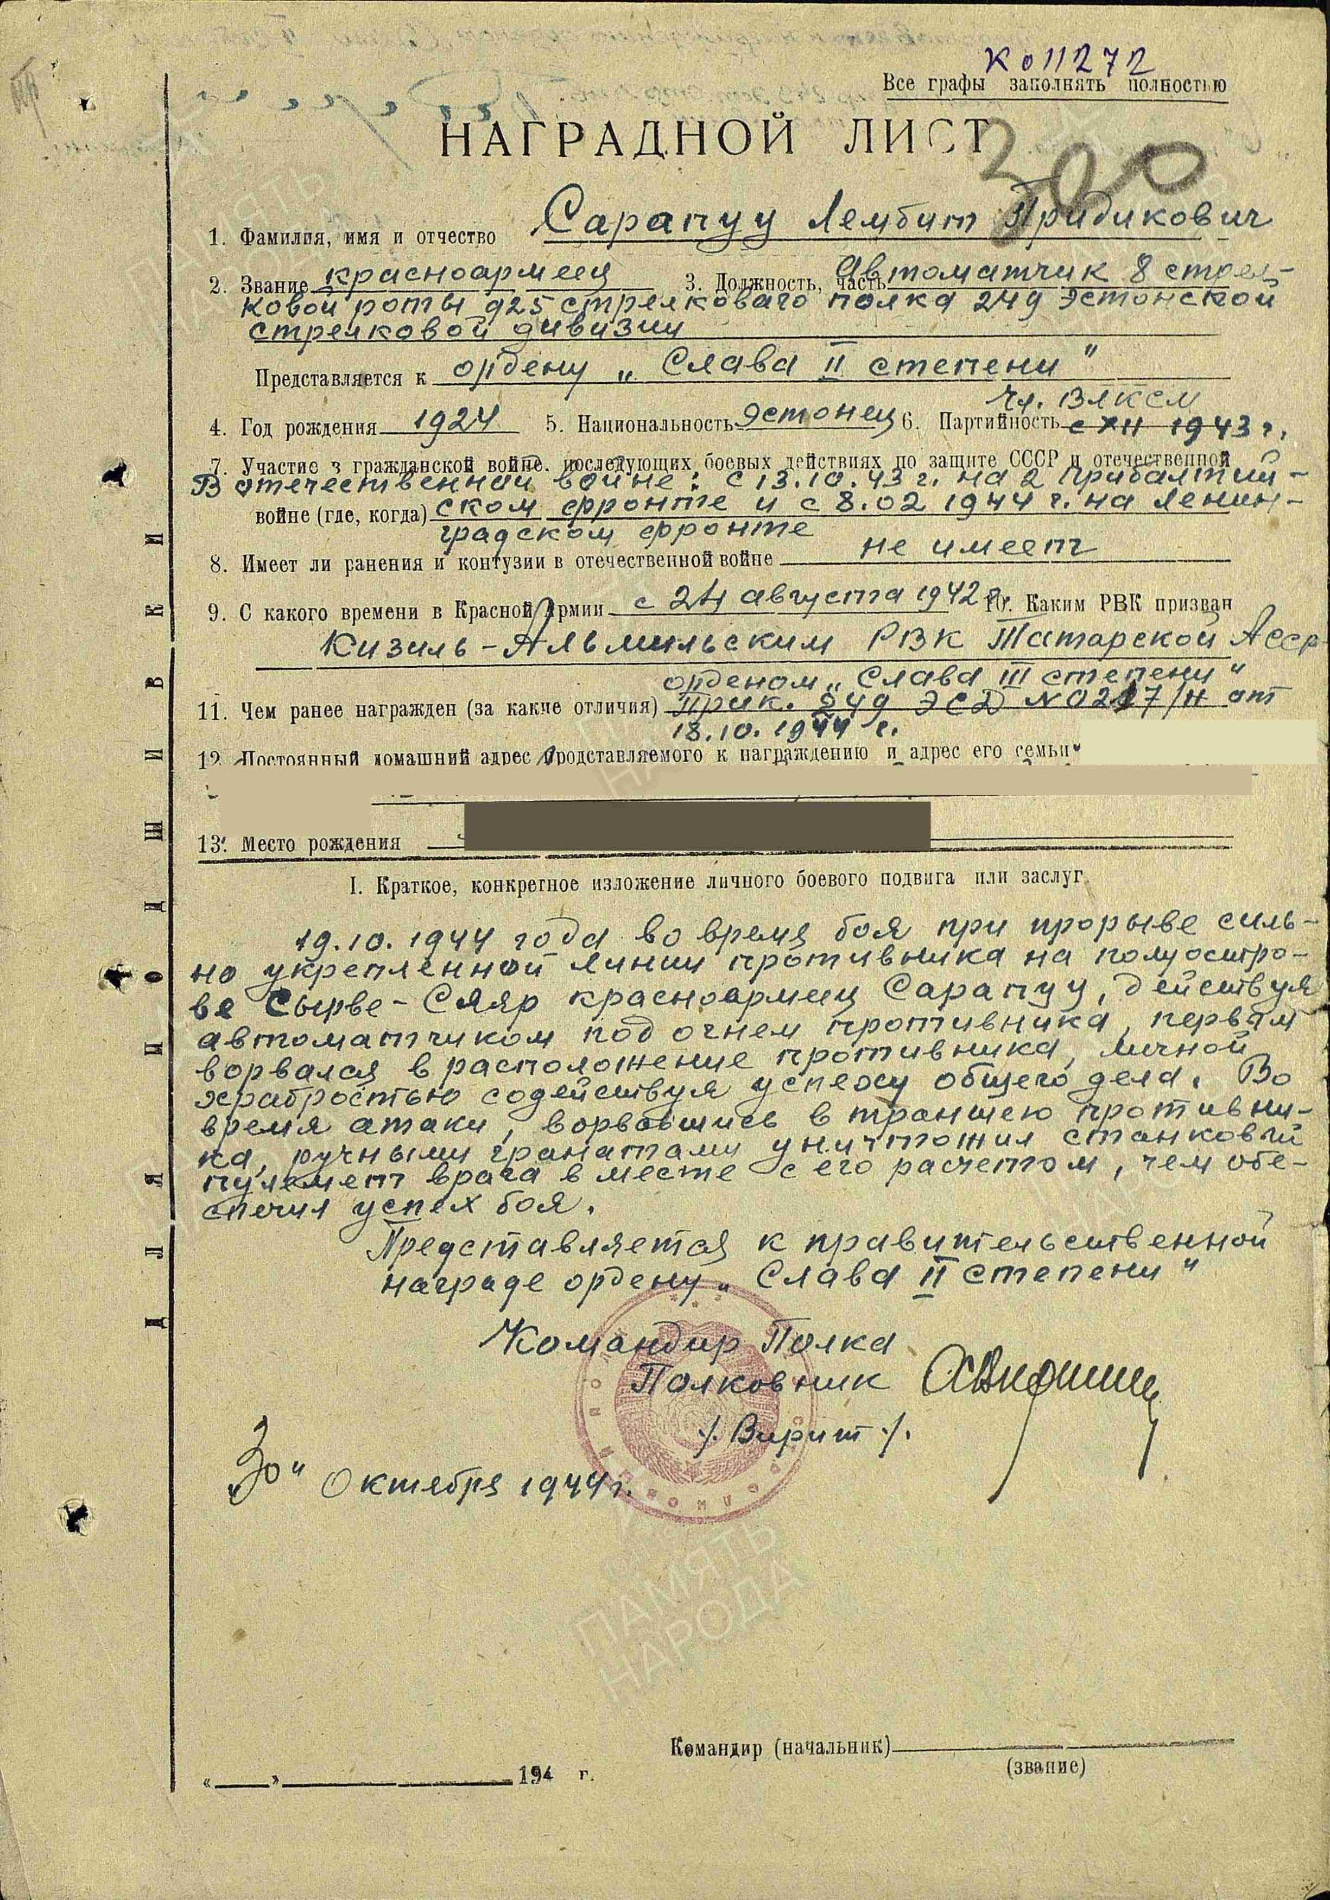 К 011272
Все графы заполнять полностью
НАГРАДНОЙ ЛИСТ
300
1. Фамилия, имя и отчество Сарапуу Лембит Придикович
2. Звание красноармеец 3. Должность, часть Автоматчик 8 стрел-
ковой роты 925 стрелковаго полка 249 Эстонской
стрелковой дивизии
Представляется к ордену „Слава II степени"
4. Год рождения 1924 5. Национальность Эстонец 6. Партийность чл. ВЛКСМ
с XII 1943 г.
7. Участие в гражданской войне, последующих боевых действиях по защите СССР и отечественной
В отечественной войне: с 13.10.43 г. на 2 Прибалтий-
войне (где, когда) ском фронте и с 8.02 1944 г. на Ленин-
градском фронте
8. Имеет ли ранения и контузии в отечественной войне не имеет
9. С какого времени в Красной Армии с 24 августа 1942 г. 10. Каким РВК призван
Кизиль-Альмильским РВК Татарской Асср
орденом „Слава III степени"
11. Чем ранее награжден (за какие отличия) Прик. 249 ЭСД № 0217/н от
18.10.1944 г.
12. Постоянный домашний адрес представляемого к награждению и адрес его семьи
13. Место рождения
I. Краткое, конкретное изложение личного боевого подвига или заслуг
19.10.1944 года во время боя при прорыве силь-
но укрепленной линии противника на полуостро-
ве Сырве-Сяяр красноармеец Сарапуу, действуя
автоматчиком под огнем противника, первым
ворвался в расположение противника, личной
храбростью содействуя успеху общего дела. Во
время атаки, ворвавшись в траншею противни-
ка, ручными гранатами уничтожил станковый
пулемет врага вместе с его расчетом, чем обе-
спечил успех боя.
Представляется к правительственной
награде ордену „Слава II степени"
Командир Полка
Полковник
/. Вирит ./.
„30" Октября 1944 г.
Командир (начальник)
(звание)
« » 194 г.
ДЛЯ ПОДШИВКИ
ПАМЯТЬ
НАРОДА